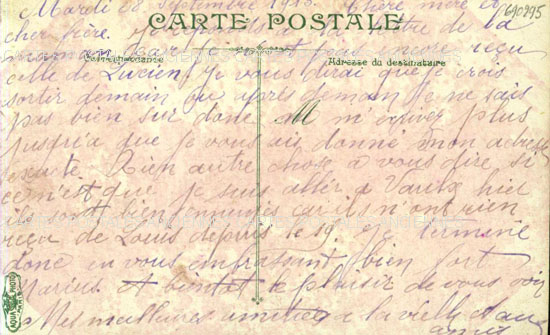 Mardi 28 Septembre 1915. Chère mère et
610295
CARTE POSTALE
cher frère. Je réponds à la lettre de la
maman car je n'ai pas encore reçu
Correspondance
Adresse du destinataire
celle de Lucien. Je vous dirai que je crois
sortir demain ou après demain je ne sais
pas bien sur donc m'écrivez plus
jusqu'à que je vous ai donné mon adresse
exacte. Rien autre chose à vous dire si
ce n'est que je suis aller à hier
ils sont bien ennuyés car ils n'ont rien
reçu de Louis depuis le 19. Je termine
donc en vous embrassant bien fort
Marius. et bientôt le plaisir de vous voir
Mes meilleures amitiés à la vieille
AQUA PHOTO